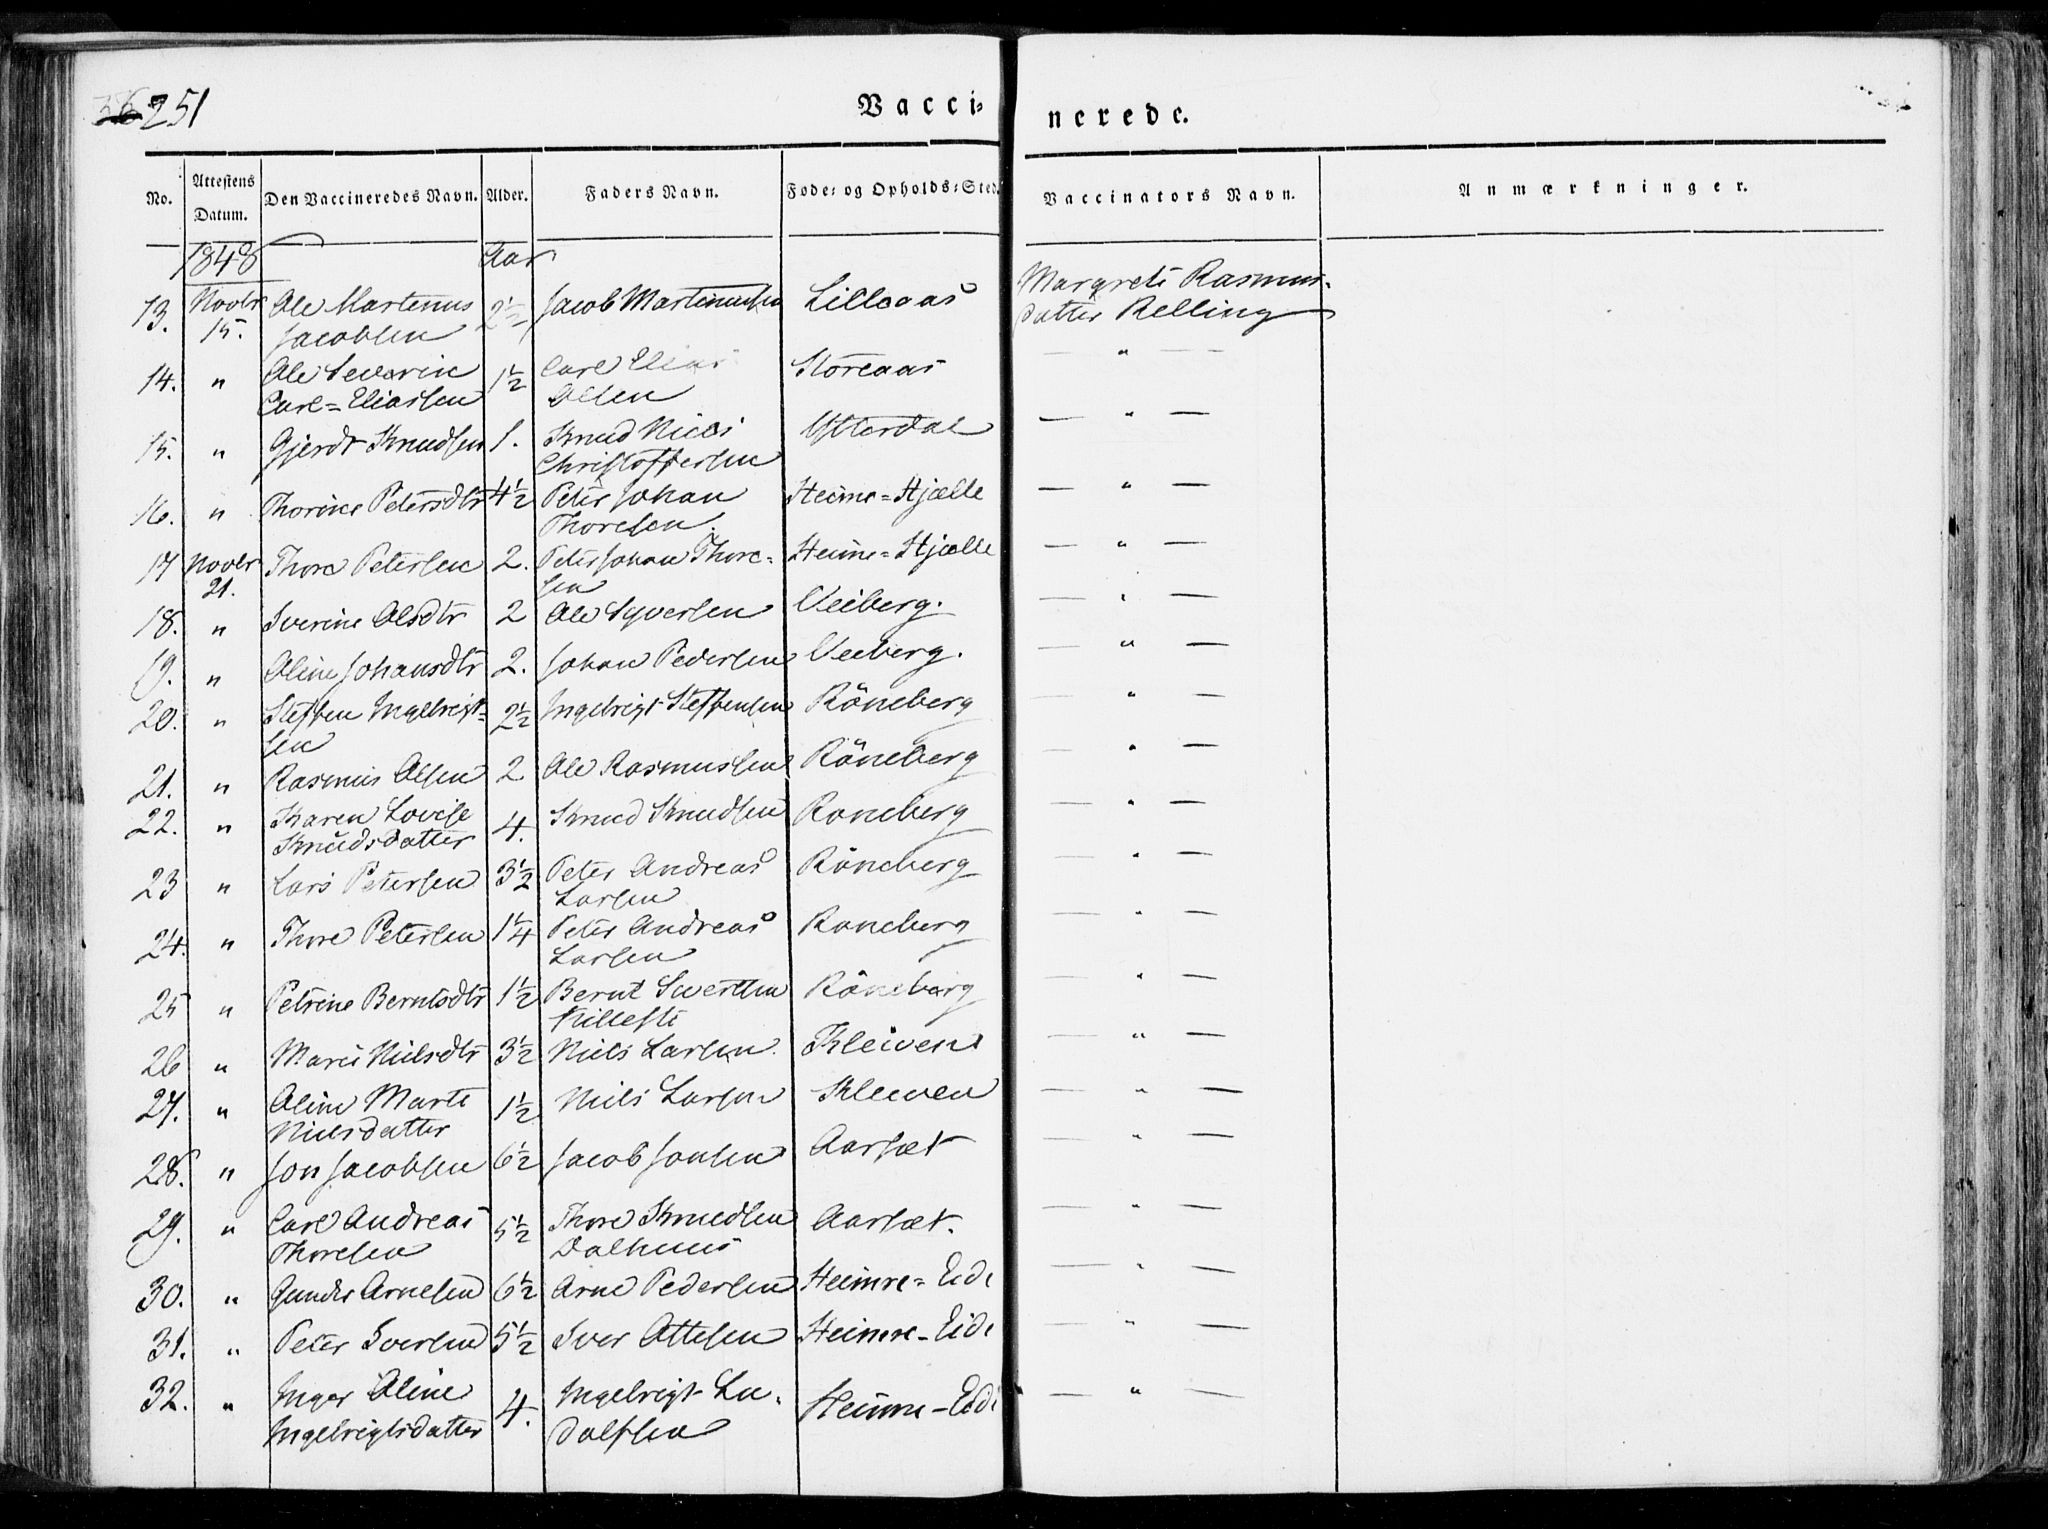 251
Vacci- nerede.
No. Attestens Datum. Den Vaccineredes Navn. Alder. Faders Navn. Føde- og Opholds-Sted. Vaccinators Navn. Anmærkninger.
1848 Aar
13. Novbr 15. Ole Martinus Jacobsen 2½ Jacob Martinussen Lilleaas Margrete Rasmus-datter Relling
14. " Ole Severin Carl=Eliassen 1½ Carl Elias Olsen Storeaas — " —
15. " Gjerdt Knudsen 1. Knud Niels Christoffersen Ytterdal — " —
16. " Thorine Petersdtr 4½ Peter Johan Thoresen. Heime=Hjelle — " —
17 Novbr 21. Thore Petersen 2. Peter Johan Thore=sen Heime=Hjelle — " —
18. " Iverine Olsdtr 2 Ole Syversen Veiberg. — " —
19. " Oline Johansdtr 2. Johan Pedersen Veiberg. — " —
20. " Steffen Ingebrigt=sen 2½ Ingebrigt Steffensen Röneberg — " —
21. " Rasmus Olsen 2 Ole Rasmussen Röneberg — " —
22. " Karen Lovise Knudsdatter 4. Knud Knudsen Roneberg — " —
23 " Lars Petersen 3½ Peter Andreas Larsen Röneberg — " —
24. " Thore Petersen 1¼ Peter Andreas Larsen Roneberg — " —
25 " Petrine Berntsdtr 1½ Bernt Röneberg — " —
26 " Marie Nielsdtr 3½ Niels Larsen. Kleiven — " —
27. " Oline Marte Nielsdatter 1½ Niels Larsen Kleiven — " —
28. " Jon Jacobsen 6½ Jacob Jonsen Aarsæt — " —
29. " Carl Andreas Thoresen 5½ Thore Knudsen Dalhuus Aarsæt. — " —
30. " Gunder Arnesen 6½ Arne Pedersen Heimre=Eide — " —
31. " Peter Iversen 5½ Iver Ottesen Heimre-Eide — " —
32. " Inger Oline Ingebrigtsdatter 4. Ingebrigt Lu-dolfsen Heimre-Eide — " —